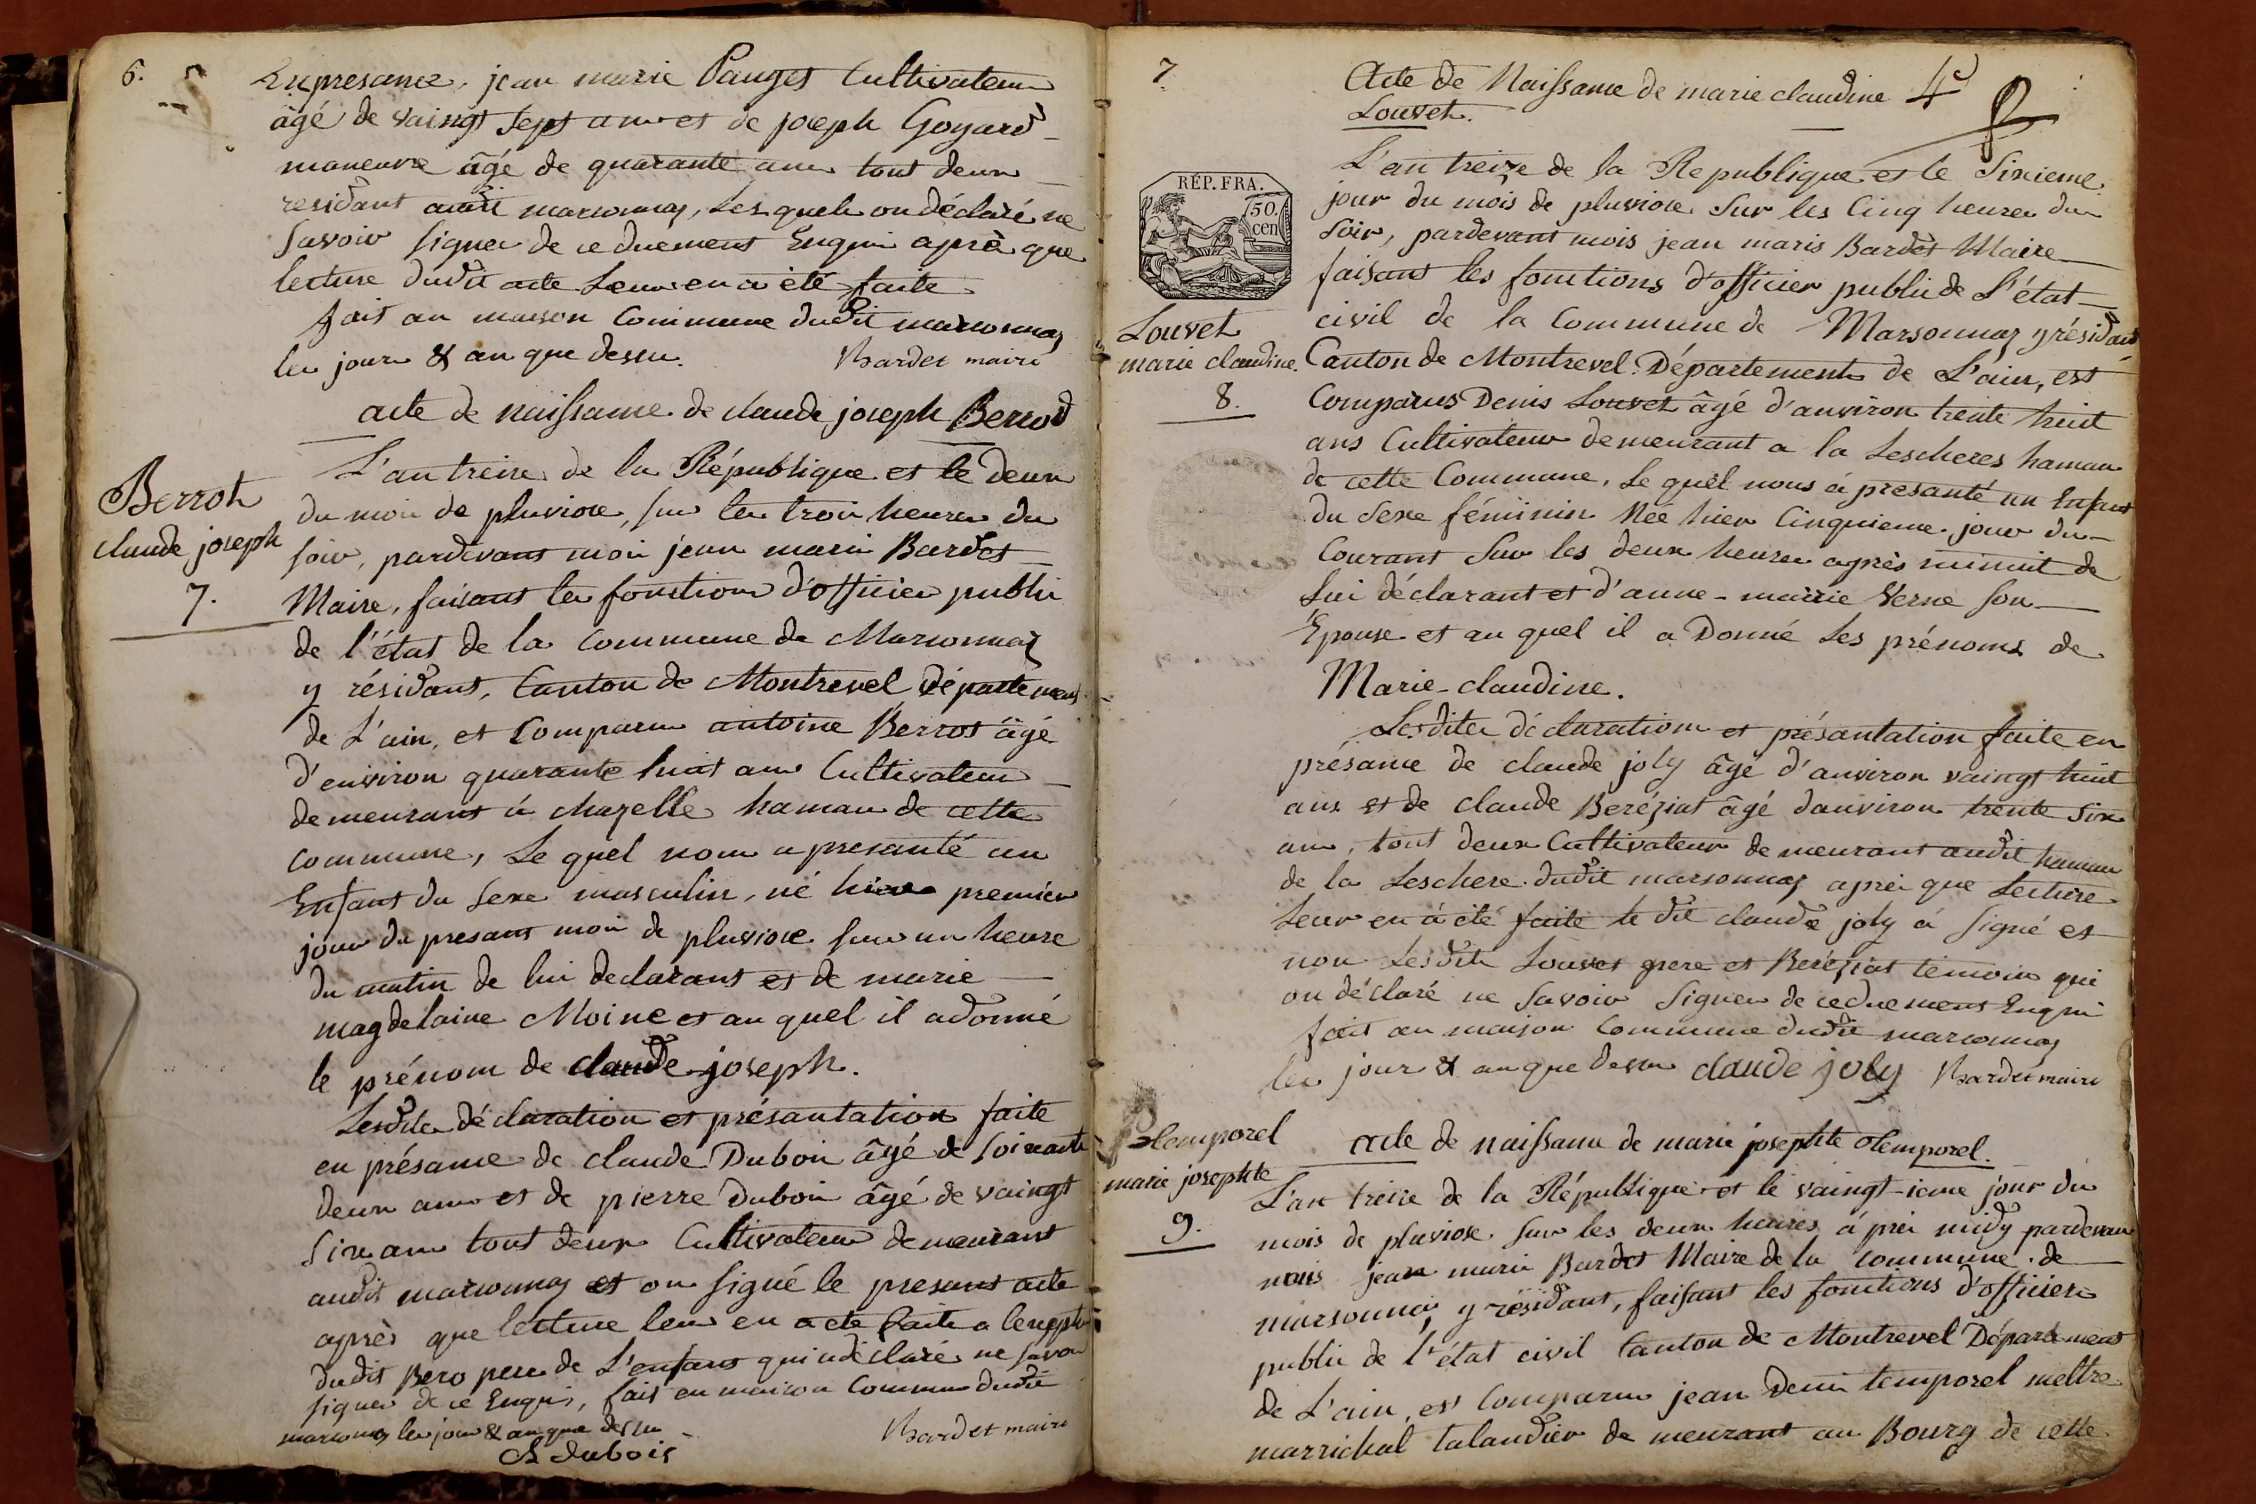 6.
En presance, jean marie Pauget Cultivateur
âgé de vaingt sept ans et de joseph Goyard
maneuvre âgé de quarante ans tout deux
residant audit marsonnas, Lesquels on déclaré ne
savoir signer de ce duement Enquis après que
lecture dudit acte Leur en a été faite
fait an maison Commune dudit marsonnas
les jour & an que dessu. Bardet maire
acte de naissance de claude joseph Berrod
Berrot
claude joseph
7.
L'an treize de la République et le deux
du mois de pluviose, sur les trois heures du
soir, pardevant moi jean marie Bardet
Maire, faisant les fonctions d'officier public
de l'état de la Commune de Marsonnas
y résidant, Canton de Montrevel Département
de L'ain, et Comparu antoine Berrot âgé
d'environ quarante huit ans Cultivateur
demeurant à chazelle hamau de cette
commune, Le quel nous a presanté un
Enfant du sexe masculin, né hier premier
jour du presant mois de pluviose sur un heure
du matin de lui declarant et de marie
magdelaine Moine et au quel il a donné
le prénom de claude joseph.
Lesdites déclaration et présantation faite
en présance de claude Duboi âgé de soixante
deux ans et de pierre Duboi âgé de vaingt
six ans tout deux Cultivateur demeurant
audit marsonnas et on signé le presant acte
après que lecture leur en a été faite a
dudit Bero pere de L'enfant qui a déclaré ne savoir
signer de ce Enquis, fait en maison Commune dudit
marsonnas les jour & an que dessu
Bardet maire
Cl dubois
7
Acte de Naissance de marie claudine
Louvet.
RÉP. FRA.
50.
cen
L'an treize de la Republique et le Sixieme
jour du mois de pluviose sur les Cinq heures du
soir, pardevant mois jean maris Bardet Maire
faisant les fonctions d'officier public de L'état
civil de la Commune de Marsonnas y résidant
Louvet
marie claudine.
8.
Canton de Montrevel Département de L'ain, est
Comparus Denis Louvet âgé d'anviron trente huit
ans Cultivateur demeurant a la Lescheres hamau
de cette Commune, Le quel nous à presanté un Enfant
du Sexe féminin Née hier Cinquieme jour du
Courant Sur les deux heures après minuit de
Lui déclarant et d'anne-marie Verne son
Epouse et au quel il a Donné Les prénoms de
Marie-claudine.
Lesdites déclaration et présantation faite en
présance de claude joly âgé d'anviron vaingt huit
ans et de claude Beréziat âgé danviron trente six
ans, tout deux Cultivateur demeurant audit hamau
de la Leschere dudit marsonnas après que Lecture
Leur en à été faite le dit claude joly à signé et
non Lesdits Louvet pere et Beréziat témoin qui
on déclaré ne Savoir Signer de ce duement Enquis
fait an maison Commune dudit marsonnas
les jour & an que dessu claude joly Bardet maire
temporel
marie josephte
9.
acte de naissance de marie josephte temporel.
L'an treize de la République et le vaingt-ieme jour du
mois de pluviose sur les deux heures après midy pardevant
nous jean marie Bardet Maire de la Commune de
marsonnas y résidant, faisant les fonctions d'officier
public de l'état civil Canton de Montrevel Département
de L'ain, est Comparu jean Denis temporel mettre
marrichal talandier demeurant au Bourg de cette